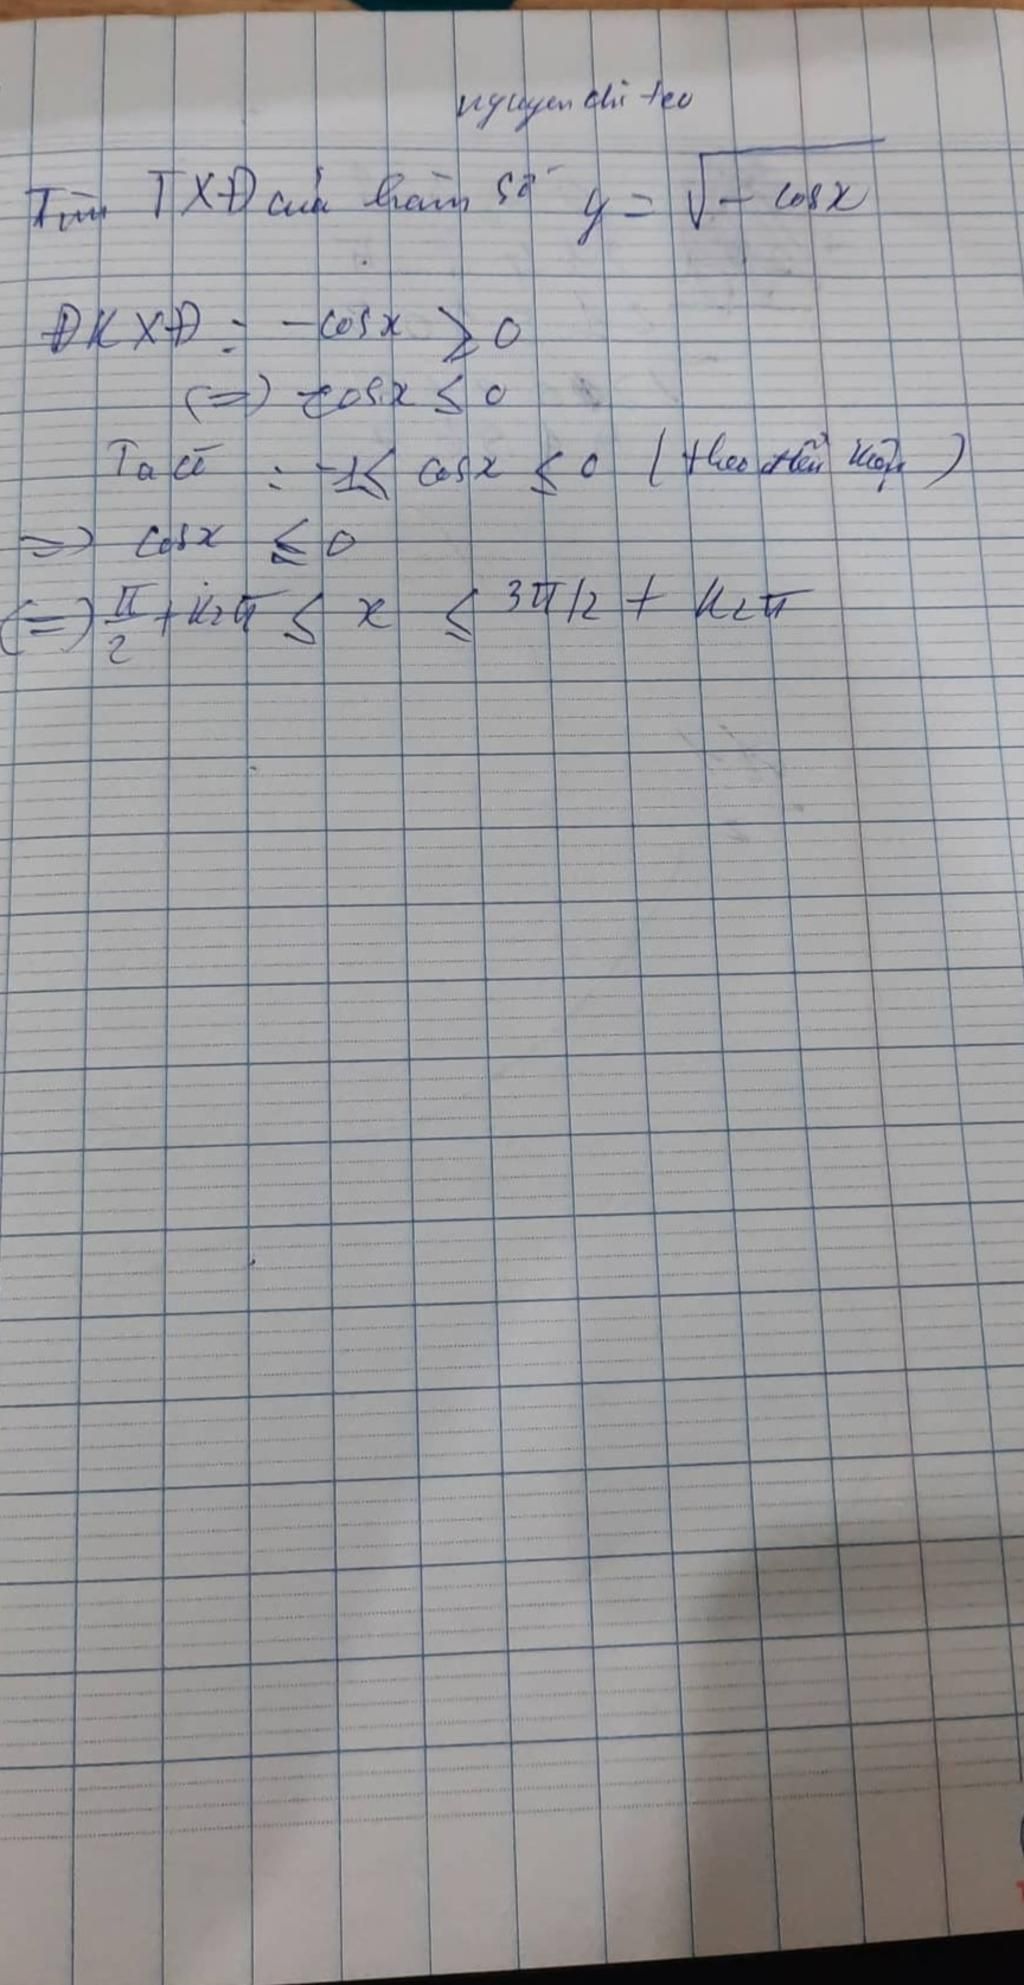 nguyen chi teo
Tìm TXĐ của hàm số y = √-cosx
ĐKXĐ : -cosx ≥ 0
(=) cosx ≤ 0
Ta có : -1 ≤ cosx ≤ 0 (theo điều kiện)
=> cosx ≤ 0
(=) π/2 + k2π ≤ x ≤ 3π/2 + k2π